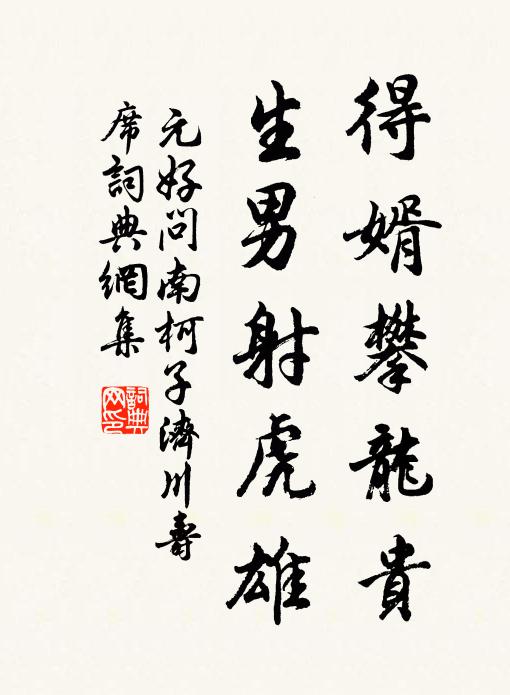 得婿攀龍貴
生男射虎雄
元好問南柯子濟川壽
席詞典網集
詞典网印